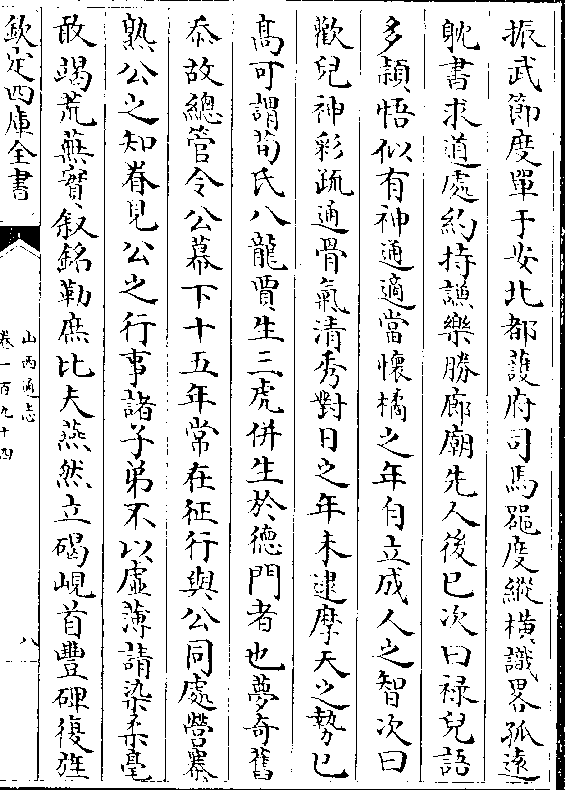 振武節度單于安北都䕶府司馬噐度縱橫識畧孤逺
躭書求道處約持謙樂勝廊廟先人後已次曰禄兒語
多頴悟似有神通適當懷橘之年自立成人之智次曰
歡兒神彩疏通骨氣清秀對日之年未逮摩天之勢已
髙可謂荀氏八龍賈生三虎併生於德門者也夢奇舊
忝故總管令公幕下十五年常在征行與公同處營寨
熟公之知眷見公之行事諸子弟不以虚薄請染柔毫
敢竭荒蕪實叙銘勒庶比夫燕然立碣峴首豐碑復旌
欽定四庫全書
山西通志
卷一百九十四
八